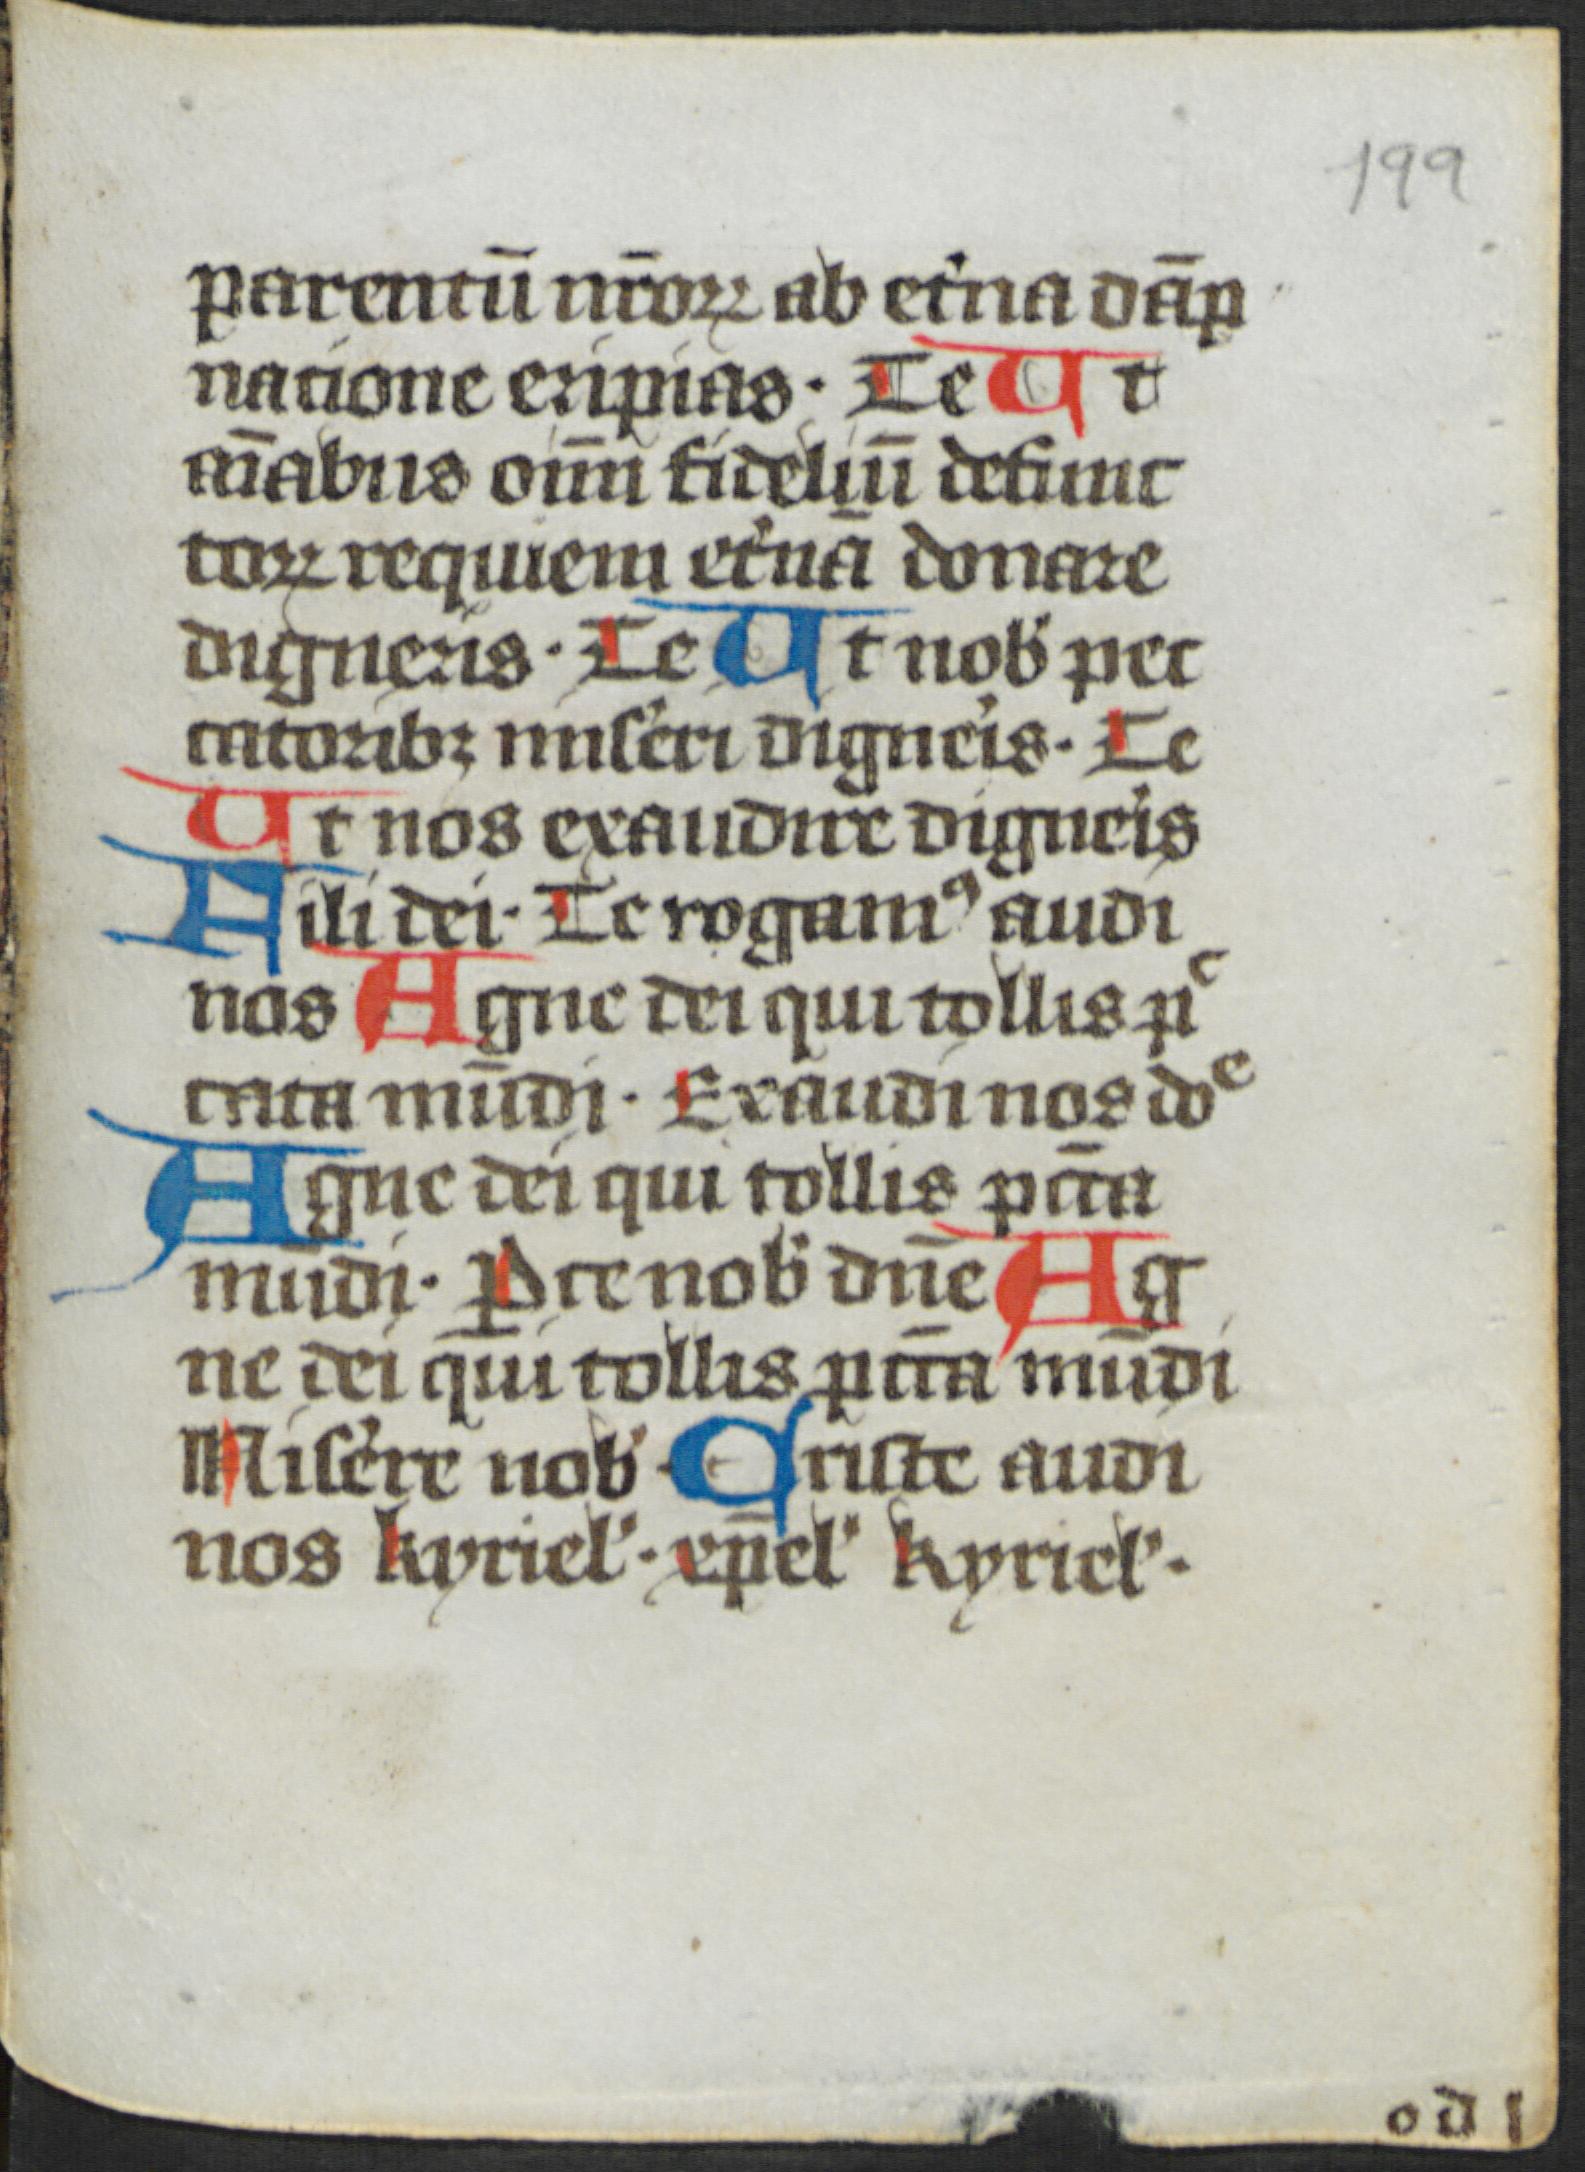 199
parentū nr̄oꝝ ab et'na dāp
natione eripias · Te Ut
aīabus om̄i fideliū defunc
toꝝ requiem et'nā donare
digneris · Te Ut nob' pec
catoribꝫ mis'eri digne'is · Te
Ut nos exaudire digne'is
Fili dei · Te rogamꝰ audi
nos Agne dei qui tollis pͨ
cata mūdi · Exaudi nos dōͤ
Agne dei qui tollis pctā
mūdi · Parce nob' dn̄e Ag
ne dei qui tollis pctā mūdi
Mis'ere nob' · Criste audi
nos kyriel' · xp̄el' kyriel' ·